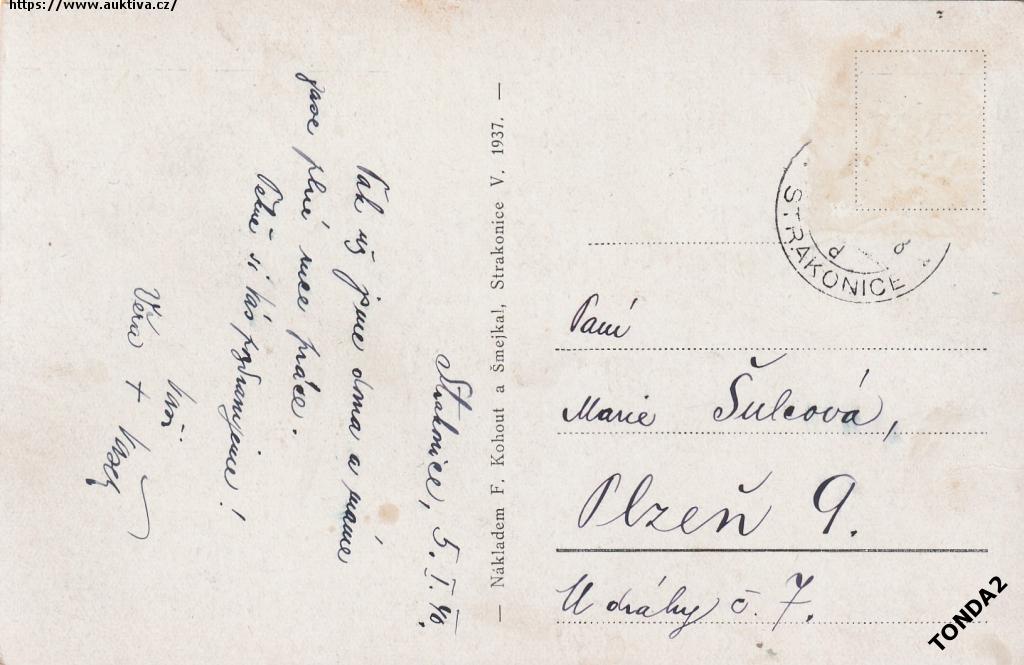 https://www.auktiva.cz/
Strakonice, 5. I. 40.
Tak už jsme doma a máme
zase plné ruce práce.
Pěkně si Vás pozdravujeme!
Vaši
Věra + Vašek
— Nákladem F. Kohout a Šmejkal, Strakonice V. 1937. —
STRAKONICE
Paní
Marie Šulcová,
Plzeň 9.
U dráhy č. 7.
TONDA2